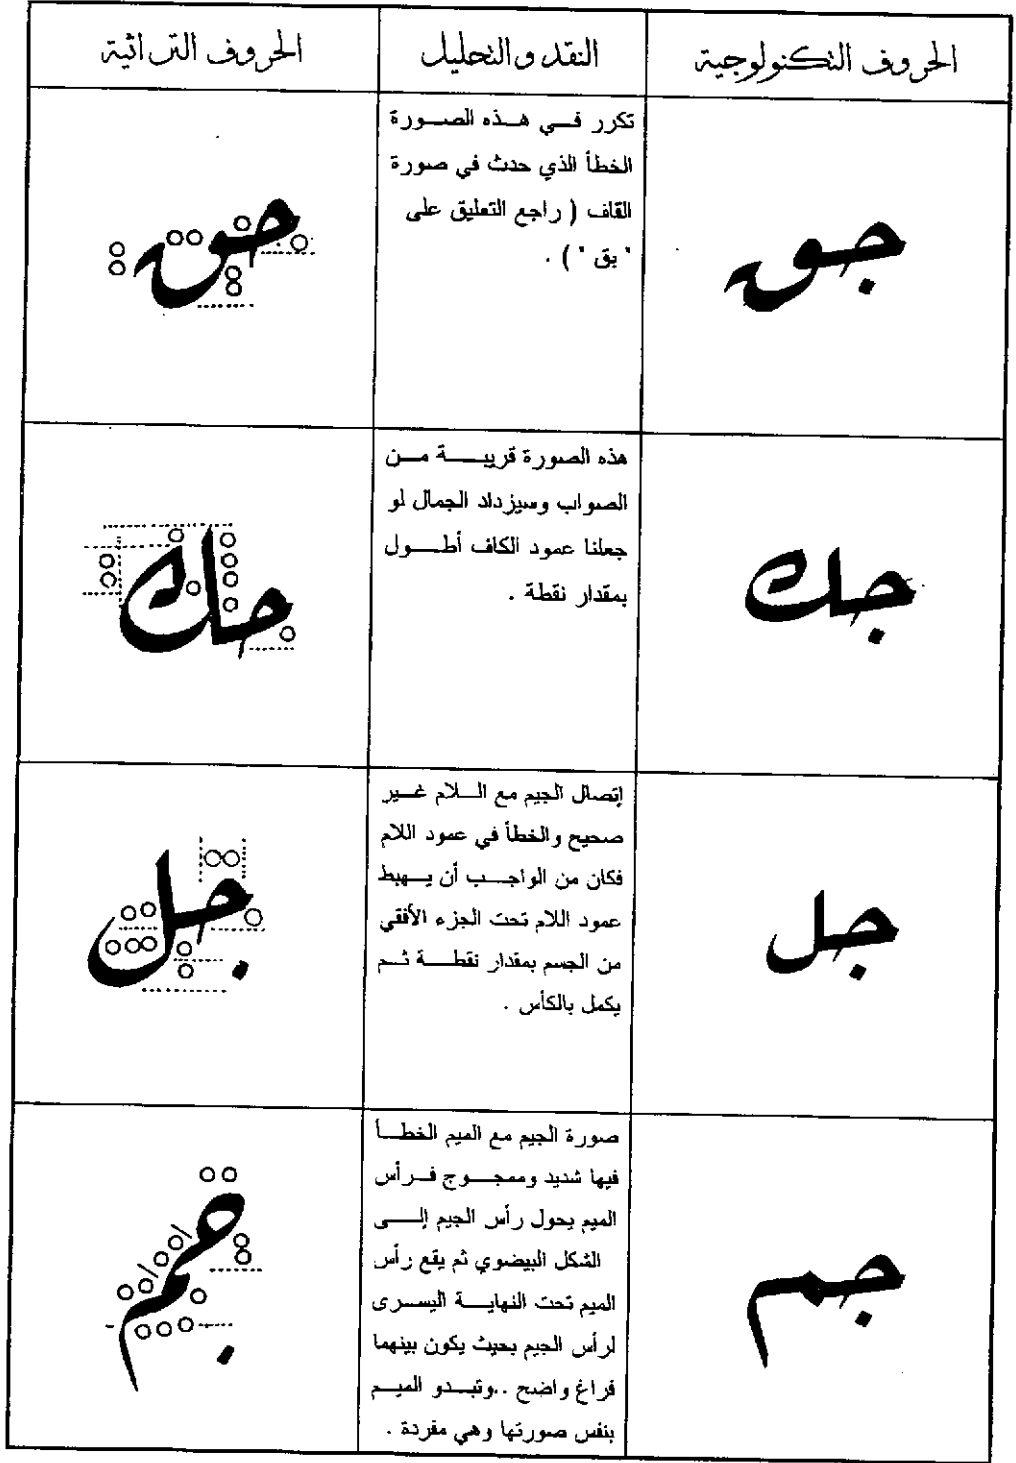 الحروف التكنولوجية
النقد والتحليل
الحروف التراثية
جو
تكرر في هذه الصورة
الخطأ الذي حدث في صورة
القاف ( راجع التعليق على
" بق " ) .
جك
هذه الصورة قريبة من
الصواب وسيزداد الجمال لو
جعلنا عمود الكاف أطول
بمقدار نقطة .
حك
جل
إتصال الجيم مع اللام غير
صحيح والخطأ في عمود اللام
فكان من الواجب أن يهبط
عمود اللام تحت الجزء الأفقي
من الجسم بمقدار نقطة ثم
يكمل بالكأس .
جل
جم
صورة الجيم مع الميم الخطأ
فيها شديد وممجوج فرأس
الميم يحول رأس الجيم إلى
الشكل البيضوي ثم يقع رأس
الميم تحت النهاية اليسرى
لرأس الجيم بحيث يكون بينهما
فراغ واضح ..وتبدو الميم
بنفس صورتها وهي مفردة .
جم